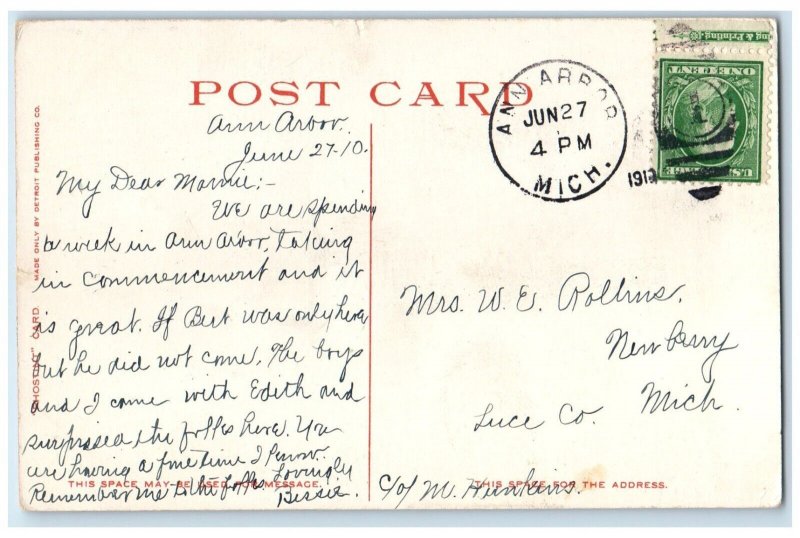 POST CARD
Ann Arbor.
June 27-10.
My Dear Mamie:-
We are spending
a week in Ann Arbor, taking
in commencement and it
is great. If Bert was only here
but he did not come. The boys
and I came with Edith and
surprised the folks here. You
are having a fine time I know.
Remember me to the folks. Lovingly
Bessie.
THIS SPACE MAY BE USED FOR MESSAGE.
"PHOSTINT" CARD. MADE ONLY BY DETROIT PUBLISHING CO.
ANN ARBOR
JUN 27
4 PM
MICH.
191
ing & Printing.
U.S. POSTAGE
ONE CENT
Mrs. W. E. Rollins.
Newberry
Luce Co. Mich.
c/o M. Hunkins.
THIS SPACE FOR THE ADDRESS.